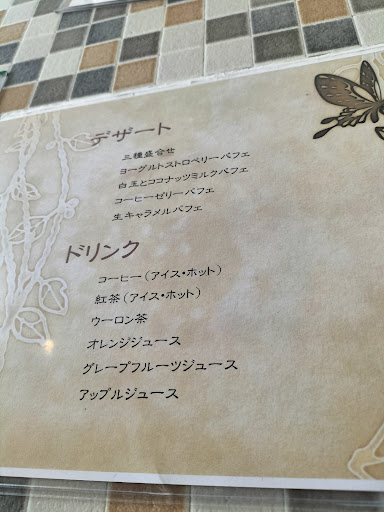 デザート
三種盛合せ
ヨーグルトストロベリーパフェ
白玉とココナッツミルクパフェ
コーヒーゼリーパフェ
生キャラメルパフェ
ドリンク
コーヒー（アイス・ホット）
紅茶（アイス・ホット）
ウーロン茶
オレンジジュース
グレープフルーツジュース
アップルジュース